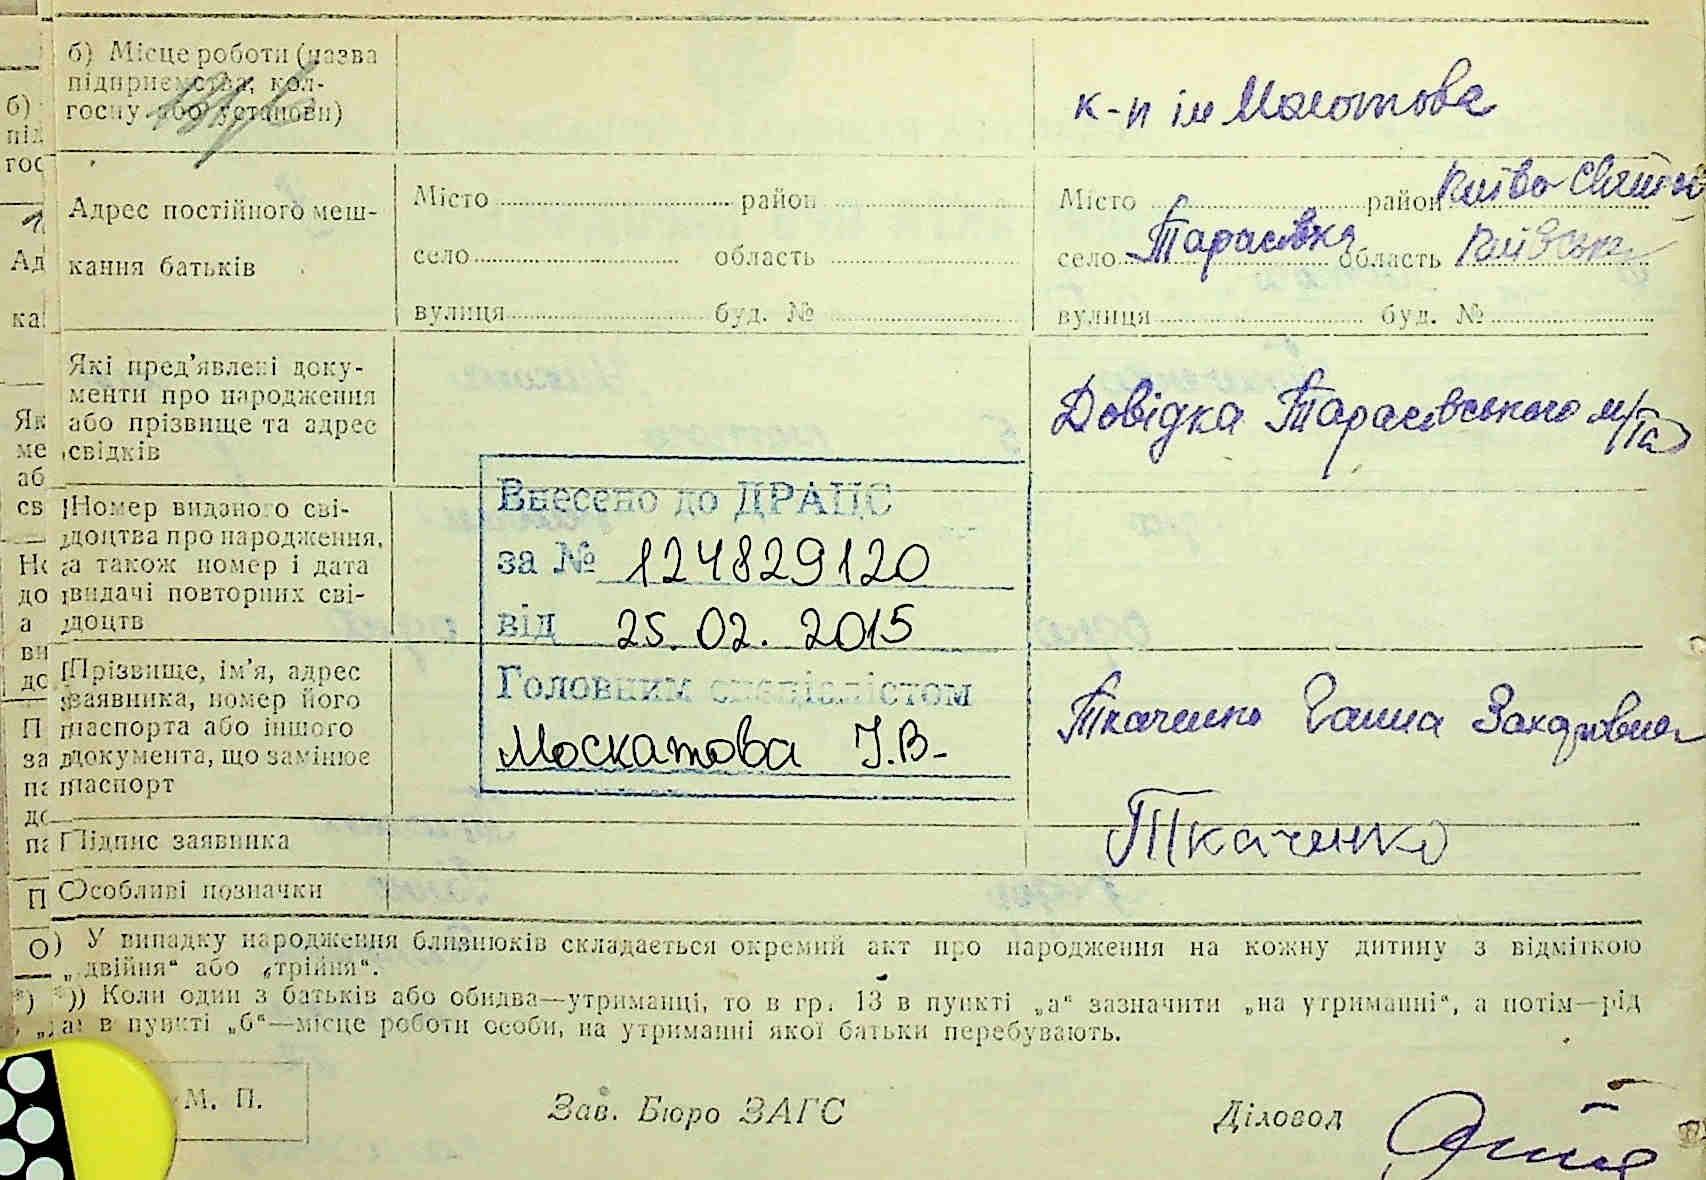 б) Місце роботи (назва
підприємства, кол-
госпу або установи)
к-п ім Молотова
Адрес постійного меш-
кання батьків
Місто район
село область
вулиця буд. №
Місто район Києво-Святош
село Тарасівка область Київська
вулиця буд. №
Які пред'явлені доку-
менти про народження
або прізвище та адрес
свідків
Довідка Тарасівського
Номер виданого сві-
доцтва про народження,
а також номер і дата
видачі повторних сві-
доцтв
Внесено до ДРАЦС
за № 124829120
від 25.02.2015
Головним спеціалістом
Москатова І.В.
Прізвище, ім'я, адрес
заявника, номер його
паспорта або іншого
документа, що замінює
паспорт
Ткаченко Ганна Захаровна
Підпис заявника
Ткаченко
Особливі позначки
) У випадку народження близнюків складається окремий акт про народження на кожну дитину з відміткою
„двійня“ або „трійня“.
*) Коли один з батьків або обидва—утриманці, то в гр. 13 в пункті „а“ зазначити „на утриманні“, а потім—рід
в пункті „б“—місце роботи особи, на утриманні якої батьки перебувають.
М. П.
Зав. Бюро ЗАГС
Діловод